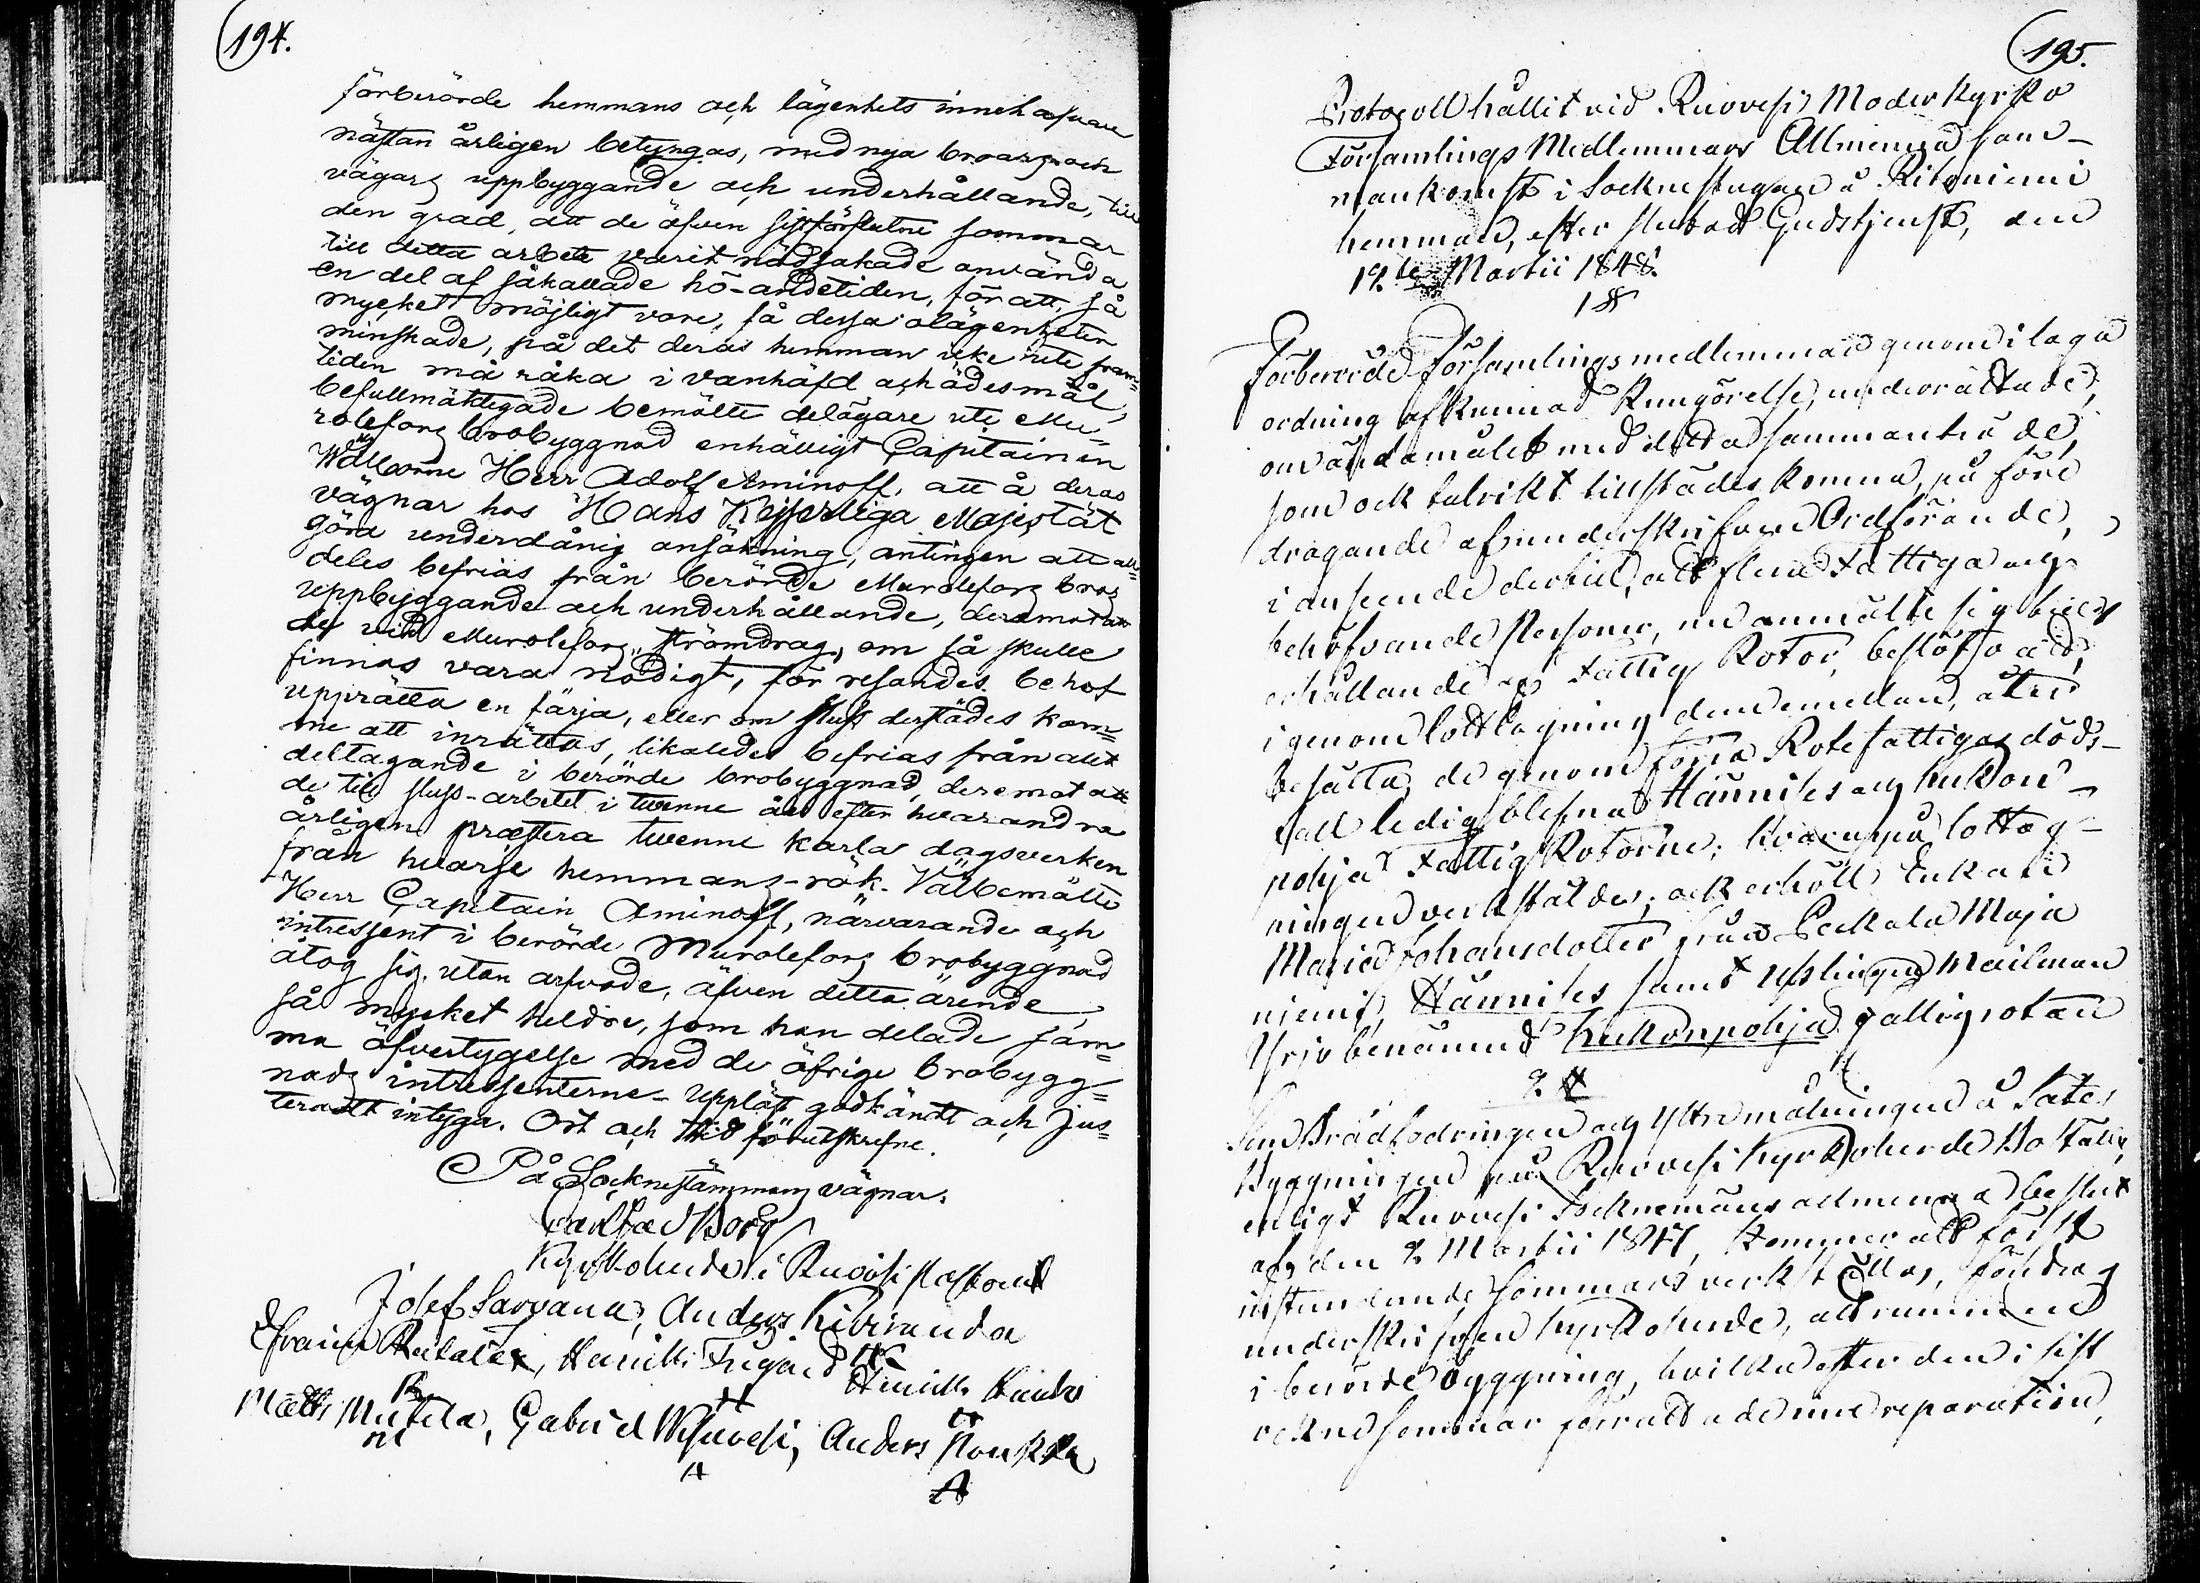 194.
förberörde hemmans och lägenhets innehafvare
nästan årligen betyngas, med nya broars och
vägars uppbyggande och underhållande, till
den grad, att de äfven sistförflutne sommar
till detta arbete varit nödsakade använda
en del af såkallade hö-andetiden, för att, så
mycket möjligt vore, få dessa olägenheter
minskade, på det deras hemman icke ute fram-
tiden må råka i vanhäfd och ödesmål,
befullmäktigade bemälte delägare ute Mu-
rolefors brobyggnad enhälligt Capitainen
Wälborne Herr Adolf Aminoff, att å deras
vägnar hos Hans Kejserliga Majestät
göra underdånig ansökning, antingen att all-
deles befrias från berörde Murolefors bros
uppbyggande och underhållande, deremot att
de vid Murolefors strömdrag, om så skulle
finnas vara nödigt, för resandes behof
upprätta en färja, eller om sluss derstädes kom-
me att inrättas, likaledes befrias från allt
deltagande i berörde brobyggnad, deremot att
de till sluss-arbetet i tvenne års efter hvarandra
årligen præstera tvenne karla dagsverken
från hvarje hemmans-rök. Välbemälte
Herr Capitain Aminoff, närvarande och
intressent i berörde Murolefors brobyggnad
åtog sig, utan arfvode, äfven detta ärende,
så mycket heldre, som han delade sam-
ma öfvertygelse med de öfrige brobygg-
nads intressenterne. Uppläst godkändt och jus-
teradt intyga. Ort och tid förutskrefne.
På Socknestämmans vägnar.
Carl Jac Borg
Kyrkoherde i Ruovesi Pastorat
Josef Sarvana, Anders Kiviranda
Efraim Ruhala, Henrik Frigård
Henrik Hanho
Matts Mustila, Gabriel Wisuvesi, Anders Koukka
195.
Protocoll hållit vid Ruovesi Moderkyrko
Församlings Medlemmars Allmenna sam-
mankomst i Socknestugan å Ritoniemi
hemman, efter slutad Gudstjenst, den
19de Martii 1848.
1 §
Förberörde Församlingsmedlemmar genom i laga
ordning afkunnad Kungörelse, underrättade,
om ändamålet med detta sammanträde,
som ock talrikt tillstädes komna, på före
dragande af underskrifven Ordförande,
i anseende dertill, att flera Fattiga och
behöfvande Personer, nu anmälte sig till
erhållande af Fattig Rotor, beslöto att,
igenom lottdragning dem emellan, åter
besätta de genom förra Rotefattigas döds-
fall ledig blefna Hännises och Kukon-
pohja Fattig Rotorne; hvaruppå lottdrag-
ningen verkstäldes; och erhöll Enkan
Maria Johansdotter från Pekkala Maja
niemi, Hännises samt Ynglingen Mailman
Yrjö benämnd Kukonpohja fattigrotan
2 §
Som Brädfodringen och Yttre målningen å Sates
Byggningen på Ruovesi Kyrkoherde Bostället,
enligt Ruovesi Socknemäns allmenna beslut
af den 2 Martii 1847, kommer att först
instundande sommar verkställas, föredrog
underskrifven Kyrkoherde, att rummen
i berörde byggning, hvilka efter den i sist
vekne sommar förrättade nue reparation,